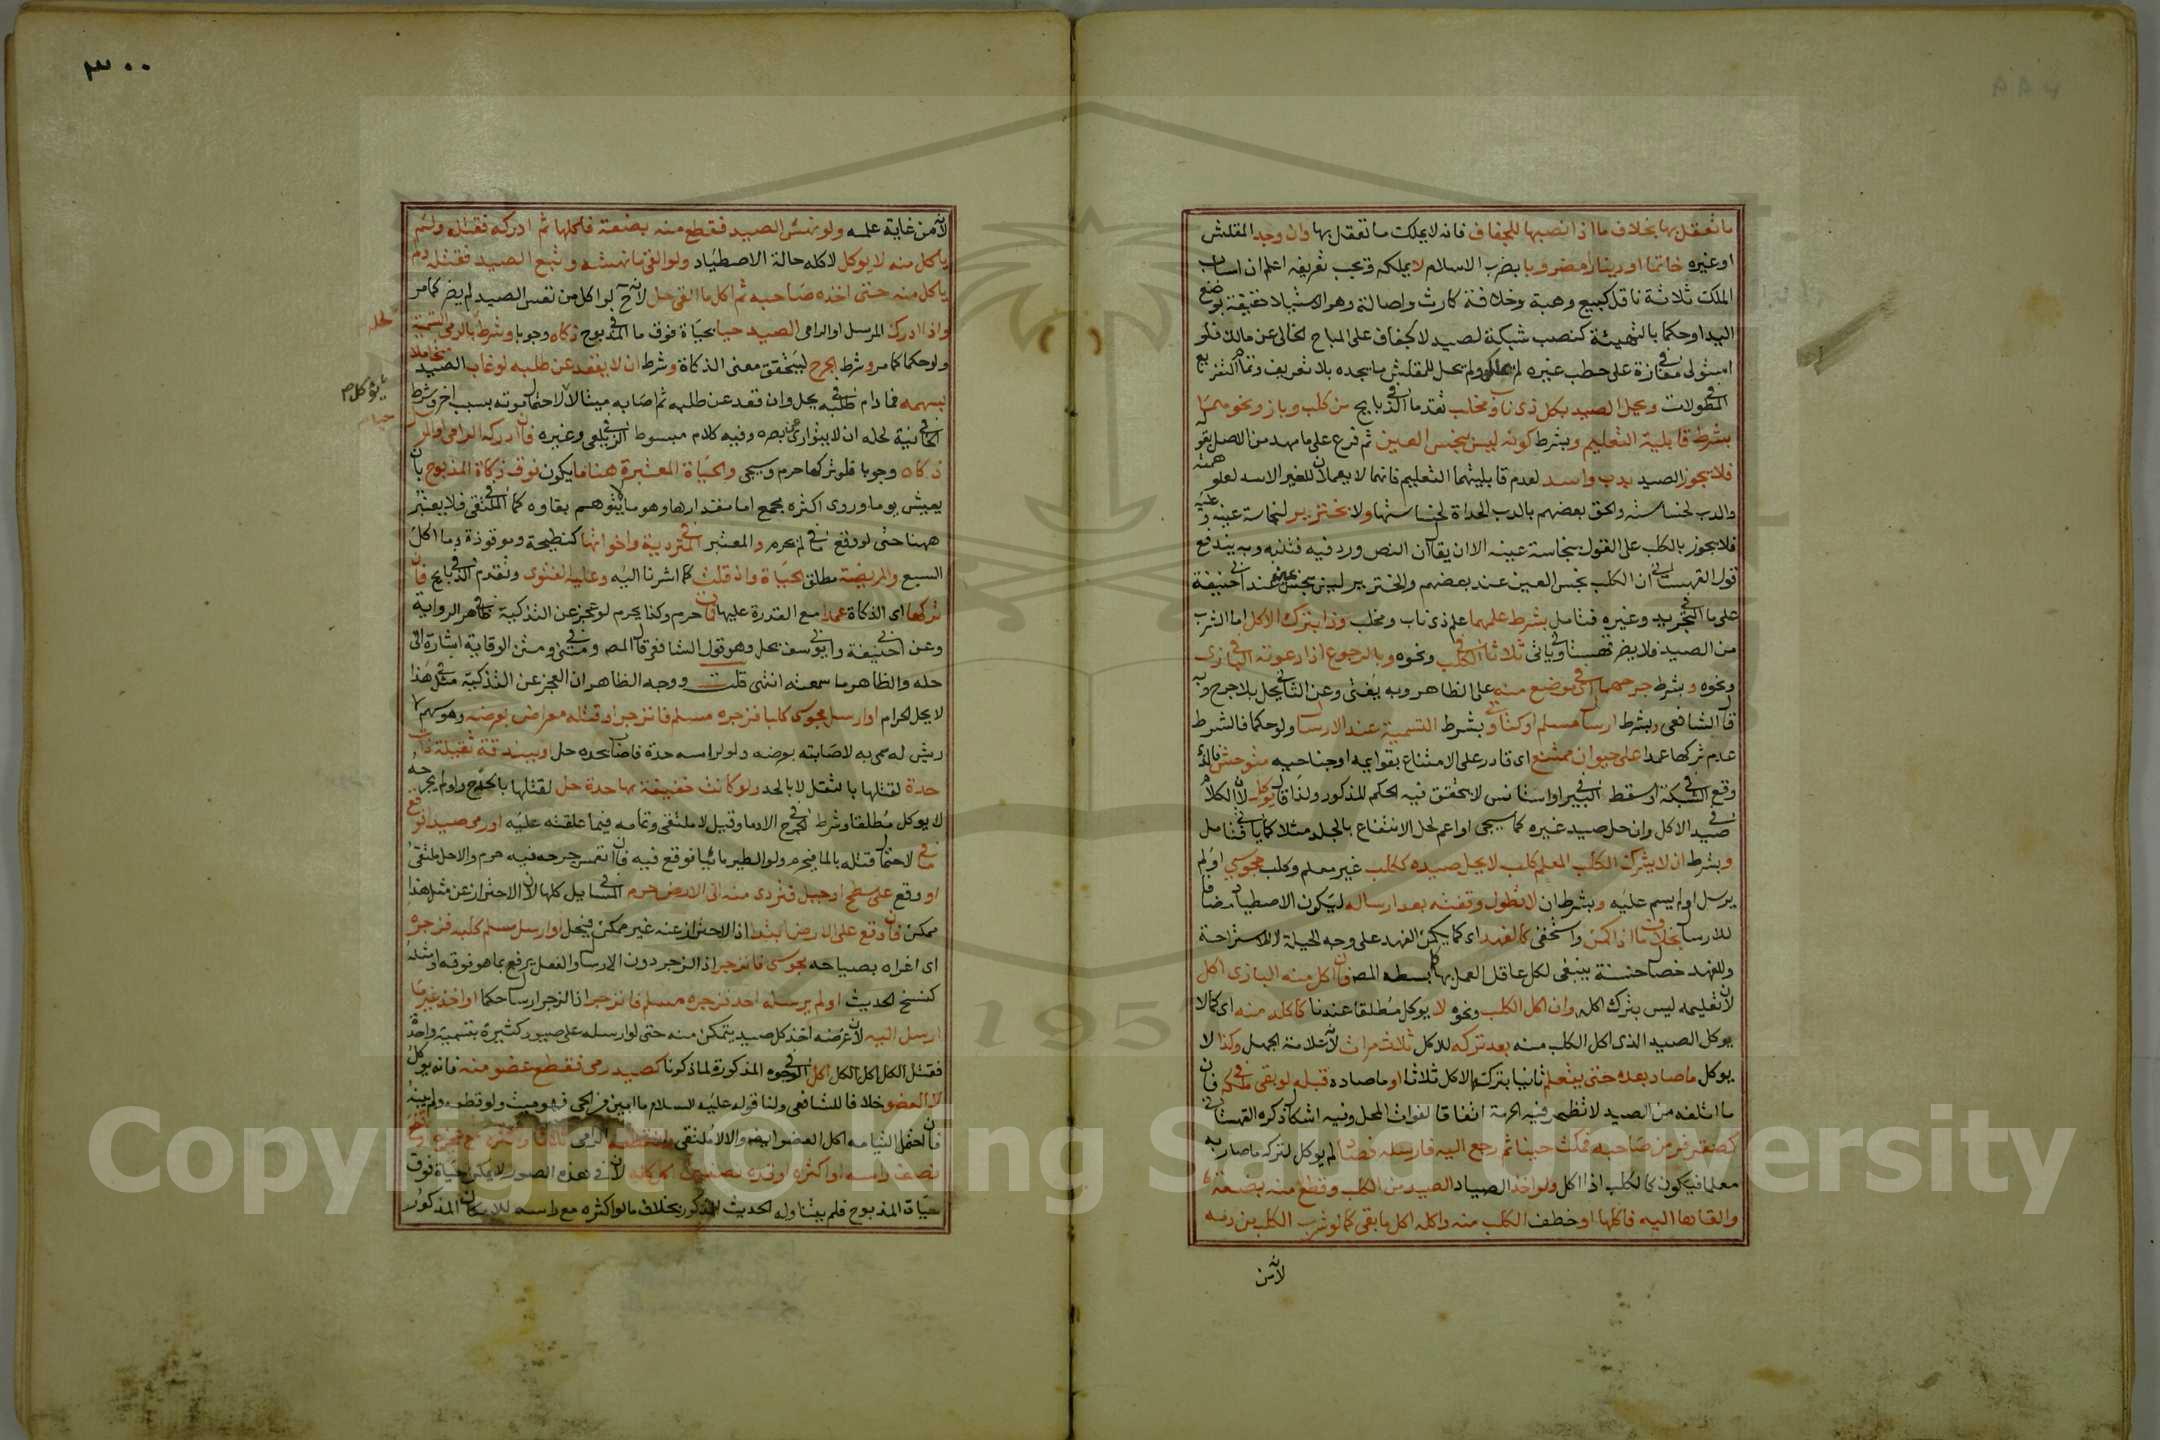 ما تعقل بها بخلاف ما اذا نصبها للجفاف فانه لا يملك ما تعقل بها وان وجد المقلش
او غيره خاتما او دينارا مضروبا بضرب الاسلام لا يملكه ويجب تعريفه اعلم ان اسباب
الملك ثلاثة ناقل كبيع وهبة وخلافة كارث واصالة وهو الاستيلاء حقيقة بوضع
اليد او حكما بالتهيئة كنصب شبكة لصيد لا لجفاف على المباح الخالي عن مالك فلو
استولى في مفازة على حطب غيره لم يملكه ولم يحل للمقلش ما يجده بلا تعريف وتمام التفريع
في المطولات ويحل الصيد بكل ذي ناب ومخلب تقدما في الذبايح من كلب وباز ونحوهما
بشرط قابلية التعليم وبشرط كونه ليس بنجس العين ثم فرع على ما مهد من الاصل بقوله
فلا يجوز الصيد بدب واسد لعدم قابليتهما التعليم فانهما لا يعملان للغير الاسد لعلو همته
والدب لخساسته والحق بعضهم بالدب الحداة لخساستها ولا بخنزير لنجاسة عينه وعليه
فلا يجوز بالكلب على القول بنجاسة عينه الا ان يقال ان النص ورد فيه فتنبه وبه يندفع
قول القهستاني ان الكلب نجس العين عند بعضهم والخنزير ليس بنجس العين عند ابي حنيفة
على ما في التجريد وغيره فتامل بشرط علمهما علم ذي ناب ومخلب وذا بترك الاكل اما الشرب
من الصيد فلا يضر قهستاني وياتي ثلاثا في الكلب ونحوه وبالرجوع اذا دعوته في البازي
ونحوه وبشرط جرحهما في اي موضع منه على الظاهر وبه يفتى وعن الثاني يحل بلا جرح وبه
قال الشافعي وبشرط ارسال مسلم او كتابي وبشرط التسمية عند الارسال ولو حكما فالشرط
عدم تركها عمدا على حيوان ممتنع اي قادر على الامتناع بقوايمه او جناحيه متوحش فالذي
وقع في الشبكة او سقط في البير او استانس لا يتحقق فيه الحكم المذكور ولذا قال يوكل لان الكلام
في صيد الاكل وان حل صيد غيره كما سيجي او اعم لحل الانتفاع بالجلد مثلا كما ياتي فتامل
وبشرط ان لا يشرك الكلب المعلم كلب لا يحل صيده ككلب غير معلم وكلب مجوسي او لم
يرسل او لم يسم عليه وبشرط ان لا تطول وقفته بعد ارساله ليكون الاصطياد مضافا
للارسال بخلاف ما اذا كمن واستخفى كالفهد اي كما يكمن الفهد على وجه الحيلة لا للاستراحة
وللفهد خصال حسنة ينبغي لكل عاقل العمل بها كما بسطه المص فان اكل منه البازي اكل
لان تعليمه ليس بترك اكله وان اكل الكلب ونحوه لا يوكل مطلقا عندنا كاكله منه اي كما لا
يوكل الصيد الذي اكل الكلب منه بعد تركه للاكل ثلاث مرات لانه علامة الجهل وكذا لا
يوكل ما صاد بعده حتى يتعلم ثانيا بترك الاكل ثلاثا او ما صاده قبله لو بقي في ملكه فان
ما اتلفه من الصيد لا تظهر فيه الحرمة اتفاقا لفوات المحل وفيه اشكال ذكره القهستاني
كصقر فر من صاحبه فمكث حينا ثم رجع اليه فارسله فصاد لم يوكل لتركه ما صار به
معلما فيكون كالكلب اذا اكل ولو اخذ الصياد الصيد من الكلب وقطع منه بضعة
والقاها اليه فاكلها او خطف الكلب منه واكله اكل ما بقي كما لو شرب الكلب من دمه
لانه من
٣٠٠
لانه من غاية علمه ولو نهس الصيد فقطع منه بضعة فاكلها ثم ادركه فقتله ولم
ياكل منه لا يوكل لاكله حالة الاصطياد ولو القى ما نهسه وتبع الصيد فقتله ولم
ياكل منه حتى اخذه صاحبه ثم اكل ما القى حل لانه ح لو اكل من نفس الصيد لم يضر كما مر
واذا ادرك المرسل او الرامي الصيد حيا بحياة فوق ما في المذبوح ذكاه وجوبا وشرط لحله بالرمي التسمية
ولو حكما كما مر وشرط الجرح ليتحقق معنى الذكاة وشرط ان لا يقعد عن طلبه لو غاب الصيد متحاملا
بسهمه فما دام في طلبه يحل وان قعد عن طلبه ثم اصابه ميتا لا لاحتمال موته بسبب اخر وشرط
في الخانية لحله ان لا يتوارى عن بصره وفيه كلام مبسوط في الزيلعي وغيره فان ادركه الرامي او المرسل حيا
ذكاه وجوبا فلو تركها حرم وسيجي والحياة المعتبرة هنا ما يكون فوق ذكاة المذبوح بان
يعيش يوما وروي اكثره مجمع اما مقدارها وهو ما لا يتوهم بقاوه كما في الملتقى فلا يعتبر
ههنا حتى لو وقع في ما لم يحرم والمعتبر في المتردية واخواتها كنطيحة وموقوذة وما اكل
السبع والمريضة مطلق الحياة وان قلت كما اشرنا اليه وعليه الفتوى وتقدم في الذبايح فان
تركها اي الذكاة عمدا مع القدرة عليها فمات حرم وكذا يحرم لو عجز عن التذكية في ظاهر الرواية
وعن ابي حنيفة وابي يوسف يحل وهو قول الشافعي قال المص وفي متني ومتن الوقاية اشارة الى
حله والظاهر ما سمعته انتهى قلت ووجه الظاهر ان العجز عن التذكية في مثل هذا
لا يحل الحرام او ارسل مجوسي كلبا فزجره مسلم فانزجر او قتله معراض بعرضه وهو سهم لا
ريش له سمي به لاصابته بعرضه ولو لراسه حدة فاصاب بحده حل او بندقة ثقيلة ذات
حدة لقتلها بالثقل لا بالحد ولو كانت خفيفة بها حدة حل لقتلها بالجرح ولو لم يجرحه
لا يوكل مطلقا وشرط في الجرح الادماء وقيل لا ملتقى وتمامه فيما علقته عليه او رمى صيدا فوقع
في ماء لاحتمال قتله بالماء فيحرم ولو الطير مائيا فوقع فيه فان انغمس جرحه فيه حرم والا حل ملتقى
او وقع على سطح او جبل فتردى منه الى الارض حرم في المسايل كلها لان الاحتراز عن مثل هذا
ممكن فان وقع على الارض ابتداء اذ الاحتراز عنه غير ممكن فيحل او ارسل مسلم كلبه فزجره
اي اغراه بصياحه مجوسي فانزجر اذ الزجر دون الارسال والفعل يرفع بما هو فوقه او مثله
كنسخ الحديث او لم يرسله احد فزجره مسلم فانزجر اذ الزجر ارسال حكما او اخذ غير ما
ارسل اليه لان غرضه اخذ كل صيد يتمكن منه حتى لو ارسله على صيود كثيرة بتسمية واحدة
فقتل الكل اكل الكل اكل في الوجوه المذكورة لما ذكرنا كصيد رمي فقطع عضو منه فانه يوكل
لا العضو خلافا للشافعي ولنا قوله عليه السلام ما ابين من الحي فهو ميت ولو قطعه ولم يبنه
فان احتمل التيامه اكل العضو ايضا والا لا ملتقى
نصف راسه او اكثره او قده نصفين اكل كله لان في هذه الصور لا يمكن حياة فوق
حياة المذبوح فلم يتناوله الحديث المذكور بخلاف ما لو اكثره مع راسه للامكان المذكور